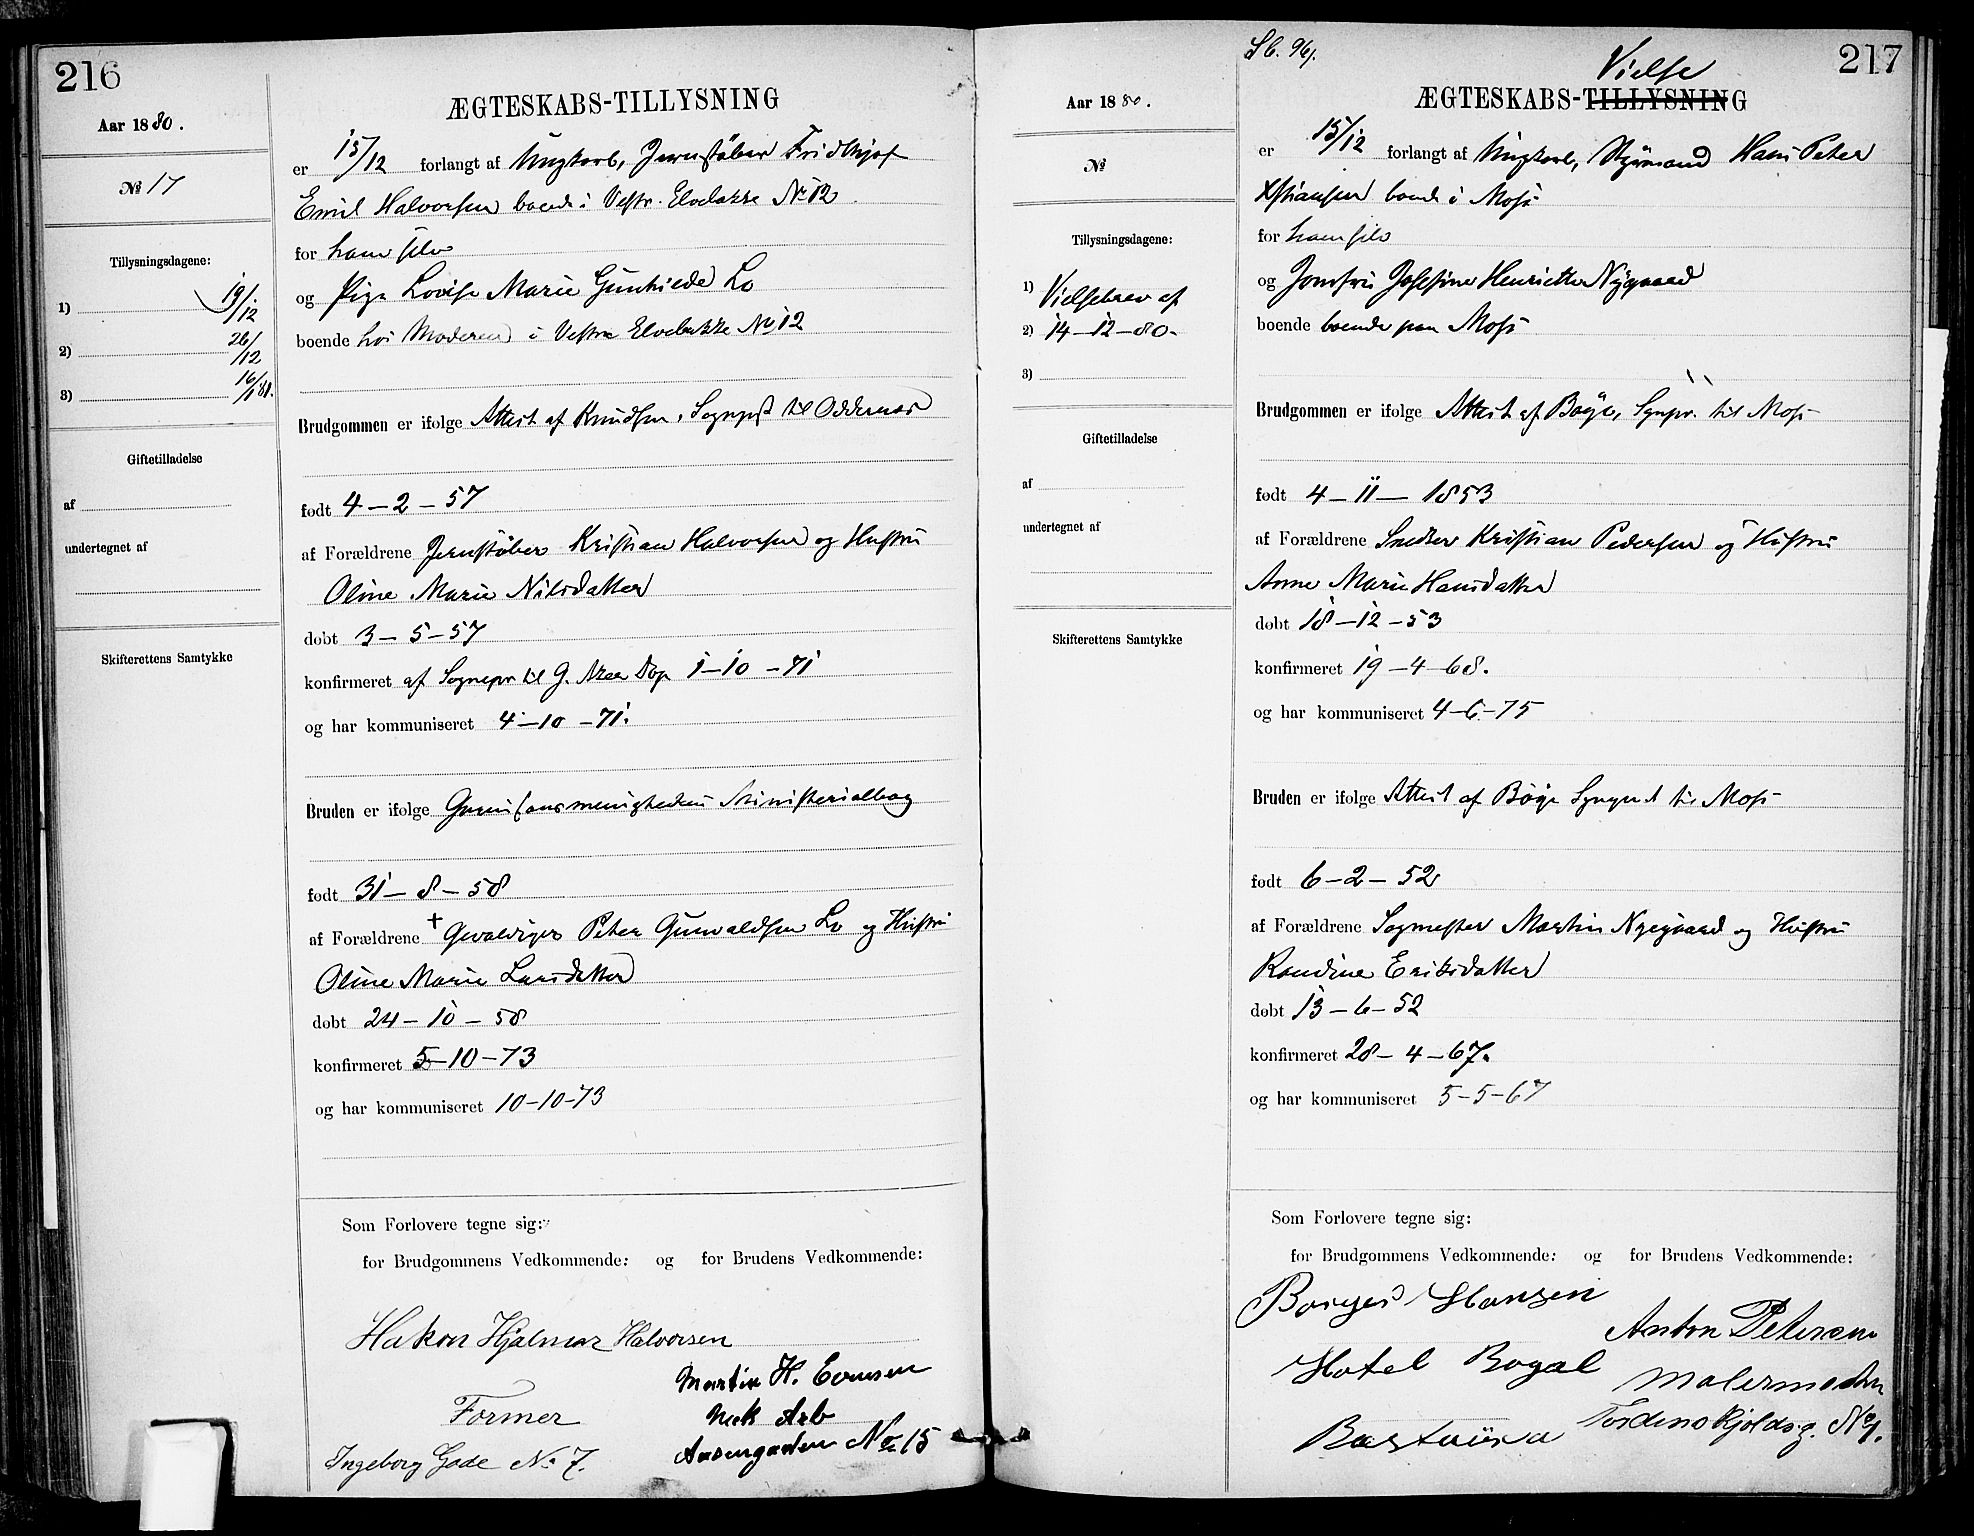 216
Aar 1880.
№ 17
Tillysningsdagene:
1) 19/12
2) 26/12
3) 16/1 81.
Giftetilladelse
af
undertegnet af
Skifterettens Samtykke
ÆGTESKABS-TILLYSNING
er 15/12 forlangt af Ungkarl, Jernstøber Fridthjof
Emil Halvorsen boende i Vestr. Elvebakke No 12
for ham selv
og Pige Lovise Marie Gunhilde Lo
boende hos Moderen i Vestre Elvebakke No 12
Brudgommen er ifølge Attest af Knudsen, Sognepst til Oddernes
født 4-2-57
af Forældrene Jernstøber Kristian Halvorsen og Hustru
Oline Marie Nilsdatter
døbt 3-5-57
konfirmeret af Sognepr til G. Aker 1-10-71
og har kommuniseret 4-10-71.
Bruden er ifølge Garnisonsmenighedens Ministerialbog
født 31-8-58
af Forældrene + Gevaldiger Peter Gunvaldsen Lo og Hustru
Oline Marie Larsdatter
døbt 24-10-58
konfirmeret 5-10-73
og har kommuniseret 10-10-73
Som Forlovere tegne sig:
for Brudgommens Vedkommende: og for Brudens Vedkommende:
Hakon Hjalmar Halvorsen
Martin H. Evensen
Former
Mek Arb
Ingeborg Gade No 7.
Aasengaden No 15
Sb. 96.
217
Aar 1880.
№
Tillysningsdagene:
1) Vielsebrev af
2) 14-12-80.
3)
Giftetilladelse
af
undertegnet af
Skifterettens Samtykke
Vielse
ÆGTESKABS-TILLYSNING
er 15/12 forlangt af Ungkarl, Styrmand Hans Peter
Xstiansen boende i Moss
for ham selv
og Jomfru Josefine Henriette Nygaard
boende boende paa Moss
Brudgommen er ifølge Attest af Bøye, Sognpr. til Moss
født 4-11-1853
af Forældrene Snedker Kristian Pedersen og Hustru
Anne Marie Hansdatter
døbt 18-12-53
konfirmeret 19-4-68.
og har kommuniseret 4-6-75
Bruden er ifølge Attest af Bøye Sognepst til Moss
født 6-2-52
af Forældrene Sagmester Martin Nygaard og Hustru
Randine Eriksdatter
døbt 13-6-52
konfirmeret 28-4-67.
og har kommuniseret 5-5-67
Som Forlovere tegne sig:
for Brudgommens Vedkommende: og for Brudens Vedkommende:
Hansen
Anton Petersen
Hotel Royal
Malermester
Tordenskjoldsg. No 1.